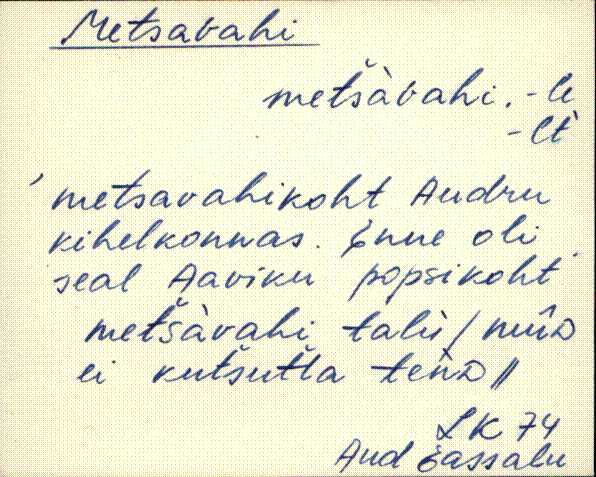 Metsavahi
metšàvahi. -le
-lt
' metsavahikoht Audru
kihelkonnas. Enne oli
seal Aaviku popsikoht
metšàvahi talù / nǖD
ei kutšutta tenD //
LK 74
Aud Eassalu